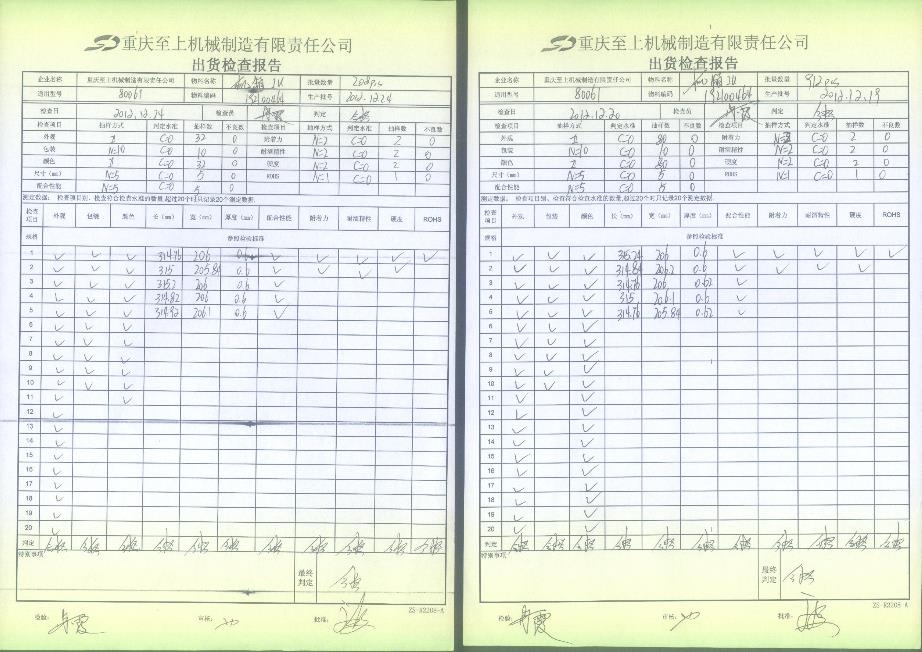 重庆至上机械制造有限责任公司
出货检查报告
企业名称 重庆至上机械制造有限责任公司 物料名称 批量数量
适用型号 80061 物料编码 192100464 生产批号 2012.12.24
检查日 2012.12.24 检查员 判定 合格
检查项目 抽样方式 判定水准 抽样数 不良数 检查项目 抽样方式 判定水准 抽样数 不良数
外观 C=0 32 0 附着力 N=2 C=0 2 0
包装 N=10 C=0 10 0 耐溶精性 N=2 C=0 2 0
颜色 C=0 32 0 硬度 N=2 C=0 2 0
尺寸(mm) N=5 C=0 5 0 ROHS N=1 C=0 1 0
配合性能 N=5 C=0 5 0
测定数据: 检查项目别、检查符合检查水准的数量,超过20个时只记录20个测定数据.
检查项目 外观 包装 颜色 长(mm) 宽(mm) 厚度(mm) 配合性能 附着力 耐酒精性 硬度 ROHS
规格 参照检验标准
1 ✓ ✓ ✓ 314.76 206 0.6 ✓ ✓ ✓ ✓ ✓
2 ✓ ✓ ✓ 315 205.84 0.6 ✓ ✓ ✓ ✓
3 ✓ ✓ ✓ 315.2 206 0.6 ✓
4 ✓ ✓ ✓ 314.82 206 0.6 ✓
5 ✓ ✓ ✓ 314.92 206.1 0.6 ✓
6 ✓ ✓ ✓
7 ✓ ✓ ✓
8 ✓ ✓ ✓
9 ✓ ✓ ✓
10 ✓ ✓ ✓
11 ✓ ✓
12 ✓
13 ✓
14 ✓
15 ✓
16 ✓
17 ✓
18 ✓
19 ✓
20 ✓
判定 合格 合格 合格 合格 合格 合格 合格 合格 合格 合格 合格
特别事项
最终判定 合格
ZS-R2208-A
检验: 审核: 批准:
重庆至上机械制造有限责任公司
出货检查报告
企业名称 重庆至上机械制造有限责任公司 物料名称 批量数量 912
适用型号 80061 物料编码 192100464 生产批号 2012.12.19
检查日 2012.12.20 检查员 判定 合格
检查项目 抽样方式 判定水准 抽样数 不良数 检查项目 抽样方式 判定水准 抽样数 不良数
外观 C=0 80 0 附着力 N=2 C=0 2 0
包装 N=10 C=0 10 0 耐溶精性 N=2 C=0 2 0
颜色 C=0 80 0 硬度 N=2 C=0 2 0
尺寸(mm) N=5 C=0 5 0 ROHS N=1 C=0 1 0
配合性能 N=5 C=0 5 0
测定数据: 检查项目别、检查符合检查水准的数量,超过20个时只记录20个测定数据.
检查项目 外观 包装 颜色 长(mm) 宽(mm) 厚度(mm) 配合性能 附着力 耐酒精性 硬度 ROHS
规格 参照检验标准
1 ✓ ✓ ✓ 315.24 206 0.6 ✓ ✓ ✓ ✓ ✓
2 ✓ ✓ ✓ 314.84 206.2 0.6 ✓ ✓ ✓ ✓
3 ✓ ✓ ✓ 314.76 206 0.62 ✓
4 ✓ ✓ ✓ 315 206.1 0.6 ✓
5 ✓ ✓ ✓ 314.76 205.84 0.62 ✓
6 ✓ ✓ ✓
7 ✓ ✓ ✓
8 ✓ ✓ ✓
9 ✓ ✓ ✓
10 ✓ ✓ ✓
11 ✓ ✓
12 ✓ ✓
13 ✓ ✓
14 ✓ ✓
15 ✓ ✓
16 ✓ ✓
17 ✓ ✓
18 ✓ ✓
19 ✓ ✓
20 ✓ ✓
判定 合格 合格 合格 合格 合格 合格 合格 合格 合格 合格 合格
特别事项
最终判定 合格
ZS-R2208-A
检验: 审核: 批准: